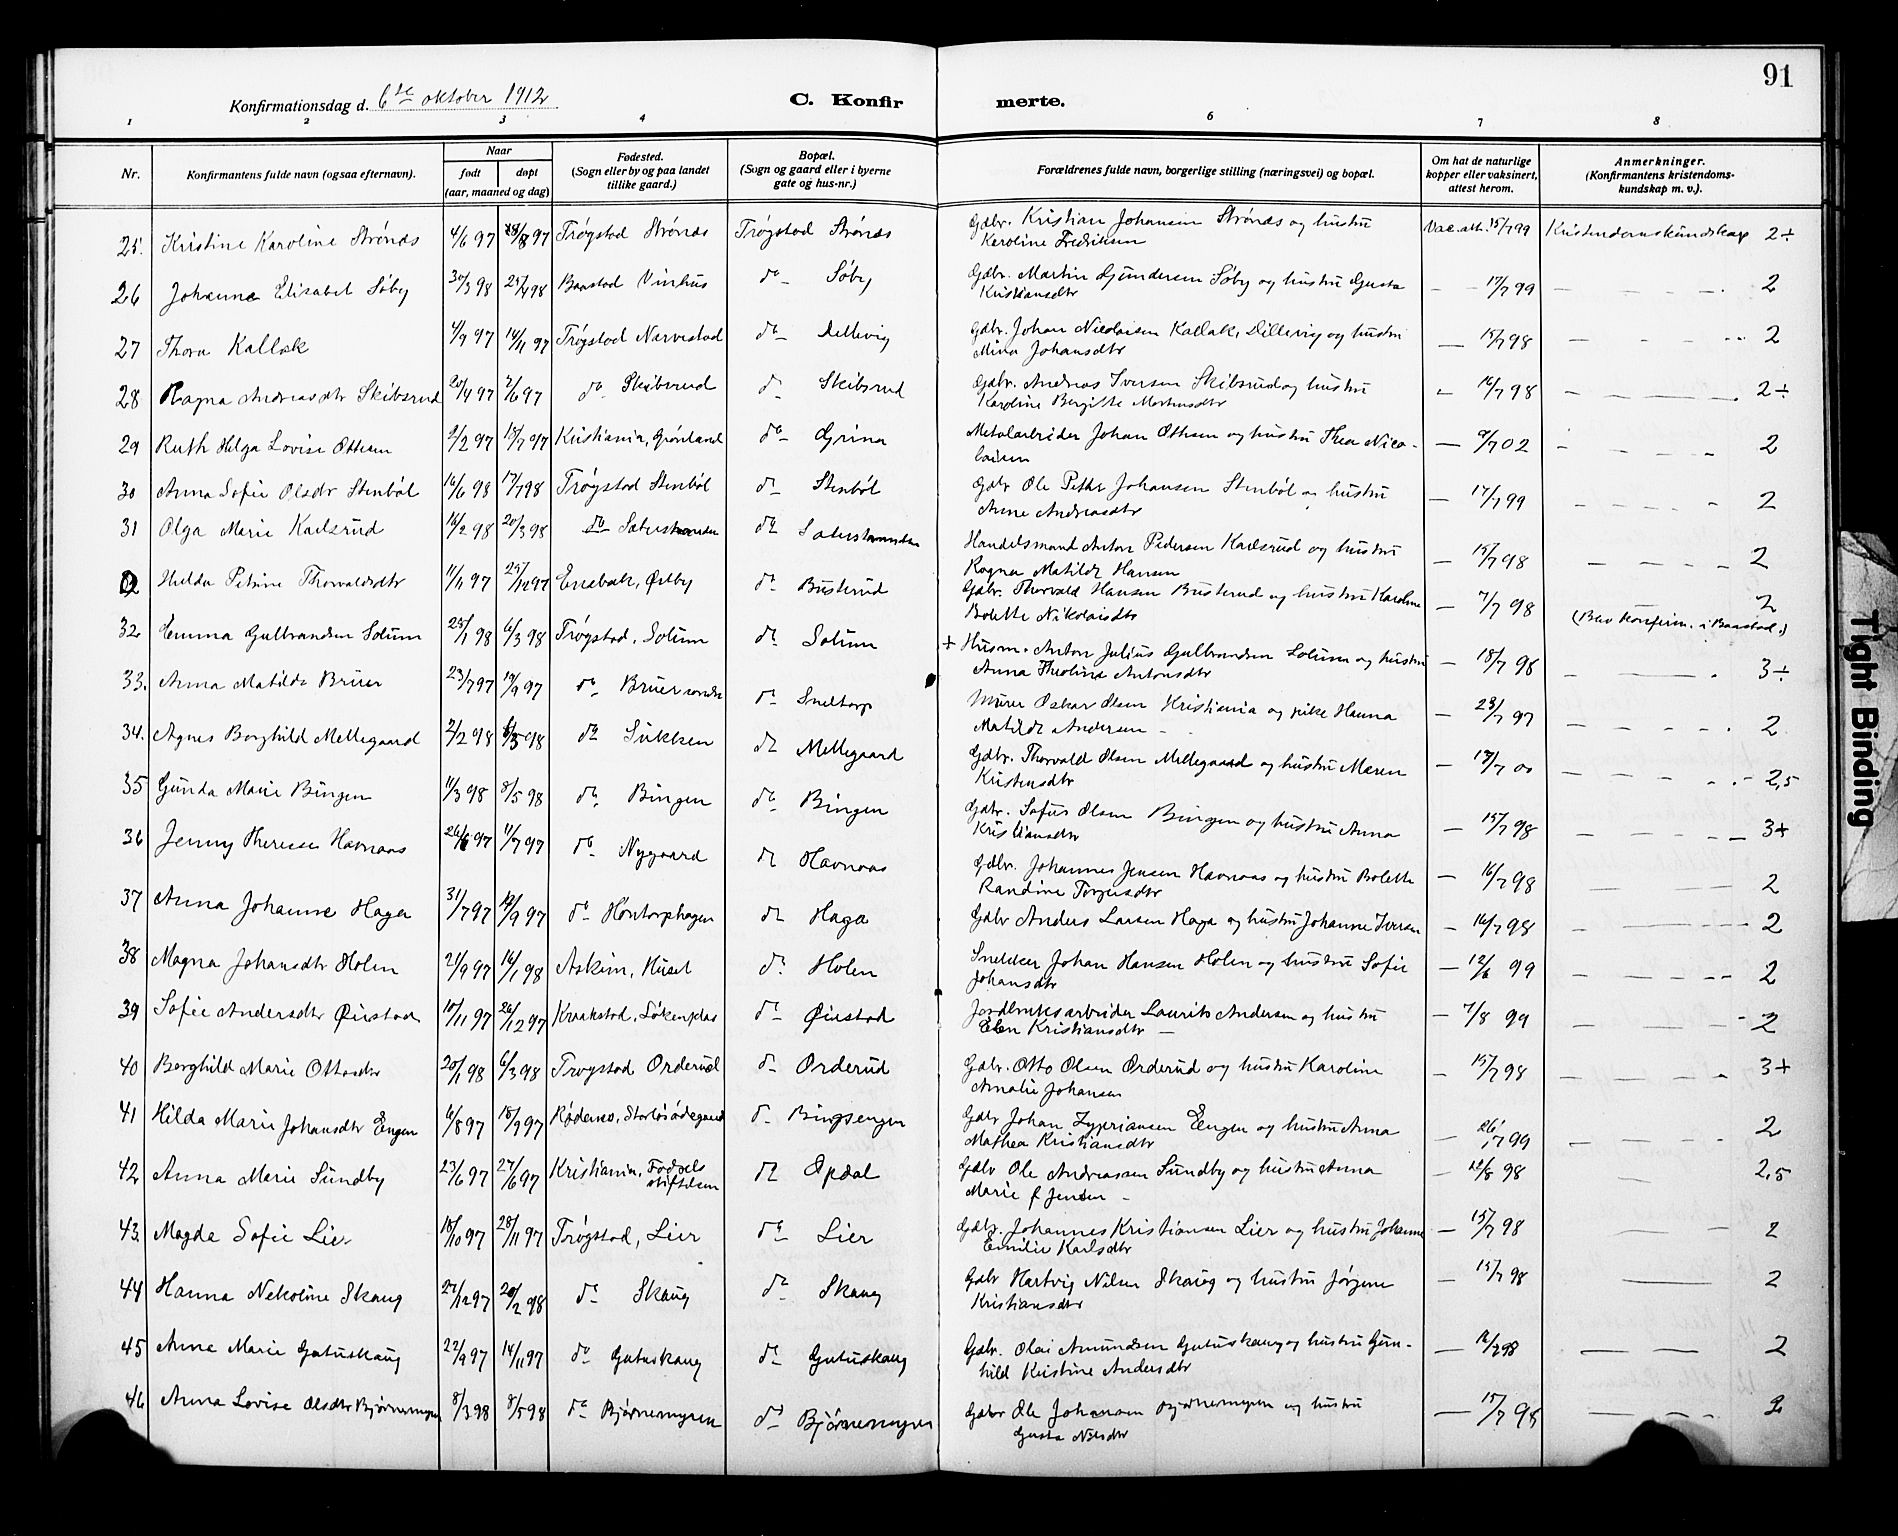 91
Konfirmationsdag d. 6te oktober 1912
C. Konfirmerte.
1 2 3 4 6 7 8
Nr.
Konfirmantens fulde navn (ogsaa efternavn).
Naar
født døpt
(aar, maaned og dag)
Fødested.
(Sogn eller by og paa landet
tillike gaard.)
Bopæl.
(Sogn og gaard eller i byerne
gate og hus-nr.)
Forældrenes fulde navn, borgerlige stilling (næringsvei) og bopæl.
Om hat de naturlige
kopper eller vaksinert,
attest herom.
Anmerkninger.
(Konfirmantens kristendoms-
kundskap m. v.).
25. Kristine Karoline Strønes 4/6 97 /8 97 Trøgstad Strønes Trøgstad Strønes Gdbr. Kristian Johansen Strønes og hustru Vac. att. 15/7 99 Kristendomskundskap 2÷
Karoline Fredriksen
26 Johanne Elisabet Søby 30/3 98 25/4 98 Baastad Vinhus do Søby Gdbr. Martin Gundersen Søby og hustru Gusta — 17/7 99 — 2
Kristiansdtr
27 Thora Kallak 4/9 97 14/11 97 Trøgstad Narvestad do Dillevig Gdbr. Johan Nicolaisen Kallak, Dillevig og hustru — 15/7 98 — 2
Mina Johansdtr
28 Ragna Andreasdtr Skibsrud 20/4 97 7/6 97 do Skibsrud do Skibsrud Gdbr. Andreas Iversen Skibsrud og hustru — 16/7 98 — 2÷
Karoline Bergitte
29 Ruth Helga Lovise Ottesen 9/2 97 15/7 97 Kristiania, Grønland do Grina Metalarbeider Johan Ottesen og hustru Thea Nico- — 9/7 02 — 2
laisen
30 Anna Sofie Olsdtr Stenbøl 16/6 98 17/7 98 Trøgstad Stenbøl do Stenbøl Gdbr Ole Petter Johansen Stenbøl og hustru — 17/7 99 — 2
Anne Andreasdtr
31 Olga Marie Karlsrud 14/2 98 20/3 98 do do Handelsmand Anton Pedersen Karlsrud og hustru — 15/7 98 — 2
Ragna Matilde Hansen
Hilda Petrine Thorvaldsdtr 11/11 97 25/12 97 Enebak, Østby do Busterud Gdbr. Thorvald Hansen Busterud og hustru Karoline — 7/7 98 2
Bolette Nikolaisdtr (Blev konfirm. i Baastad.)
32 Emma Gulbrandsen Solum 25/1 98 6/3 98 Trøgstad, Solum do Solum + Husm. Anton Julius Gulbrandsen Solum og hustru — 18/7 98 — 3÷
Anna Theoline Antonsdtr
33. Anna Matilde Bruer 23/7 97 19/9 97 do Bruer søndre do Sneltorp Murer Oskar Olsen Kristiania og pike Hanna — 23/7 97 — 2
Matilde Andersen
34. Agnes Borghild Mellegaard 2/2 98 /3 98 do Sukken do Mellegaard Gdbr. Thorvald Olsen Mellegaard og hustru Maren — 13/7 00 — 2,5
Kristensdtr
35 Gunda Marie Bingen 11/3 98 8/5 98 do Bingen do Bingen Gdbr. Sofus Olsen Bingen og hustru Anna — 15/7 98 — 3+
Kristiansdtr
36 Jenny Therese Havnaas 26/6 97 11/7 97 do Nygaard do Havnaas Gdbr. Johannes Jensen Havnaas og hustru Bolette — 16/7 98 — 2
Randine Torgersdtr
37 Anna Johanne Haga 31/7 97 12/9 97 do Hontorphagen do Haga Gdbr Anders Larsen Haga og hustru Johanne Iversen — 16/7 98 — 2
38 Magna Johansdtr Holen 21/9 97 16/1 98 Askim, Huset do Holen Snekker Johan Hansen Holen og hustru Sofie — 12/ 99 — 2
Johansdtr
39 Sofie Andersdtr Øiestad 10/11 97 26/12 97 Kraakstad, Løkenplas do Øiestad Jordbruksarbeider Laurits Andersen og hustru — 7/8 99 — 2
Elen Kristiansdtr —
40 Borghild Marie Ottosdtr 20/1 98 6/3 98 Trøgstad Orderud do Orderud Gdbr. Otto Olsen Orderud og hustru Karoline — 15/7 98 — 3+
Amalie Johansen
41 Hilda Marie Johansdtr Engen 6/8 97 18/9 97 Rødenes, do Bingsengen Gdbr Johan Zyprianssen Engen og hustru Anna — 26/7 99 — 2
Mathea Kristiansdtr
42 Anna Marie Sundby 23/6 97 27/6 97 Kristiania, Fødsels do Opdal Gdbr Ole Andreassen Sundby og hustru Anna — 12/8 98 — 2,5
stiftelsen Marie f Jensen —
43. Magda Sofie Lier 18/10 97 28/11 97 Trøgstad, Lier do Lier Gdbr. Johannes Kristiansen Lier og hustru Johanne — 15/7 98 — 2
Emilie Karlsdtr
44 Hanna Nekoline Skaug 27/12 97 20/2 98 do Skaug do Skaug Gdbr Hartvig Nilsen Skaug og hustru Jørgine — 15/7 98 — 2
Kristiansdtr
45 Anne Marie Gutuskaug 22/9 97 14/11 97 do Gutuskaug do Gutuskaug Gdbr. Olai Amundsen Gutuskaug og hustru Gun- — 16/7 98 — 2
hild Kristine Andersdtr
46 Anna Lovise Olsdtr Bjørnemyren 8/3 98 8/5 98 do Bjørnemyren do Bjørnemyren Gdbr Ole Johansen Bjørnemyren og hustru — 15/7 98 — 2
Gusta Nilsdtr
Tight Binding